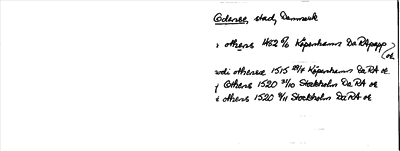 Odense, stad, Danmark
i othens 1452 9/6 Köpenhamn DaRApapp or
wdi othensse 1515 29/4 Köpenhamn DaRA or
y Othens 1520 31/10 Stockholm DaRA or
i othens 1520 9/11 Stockholm DaRA or